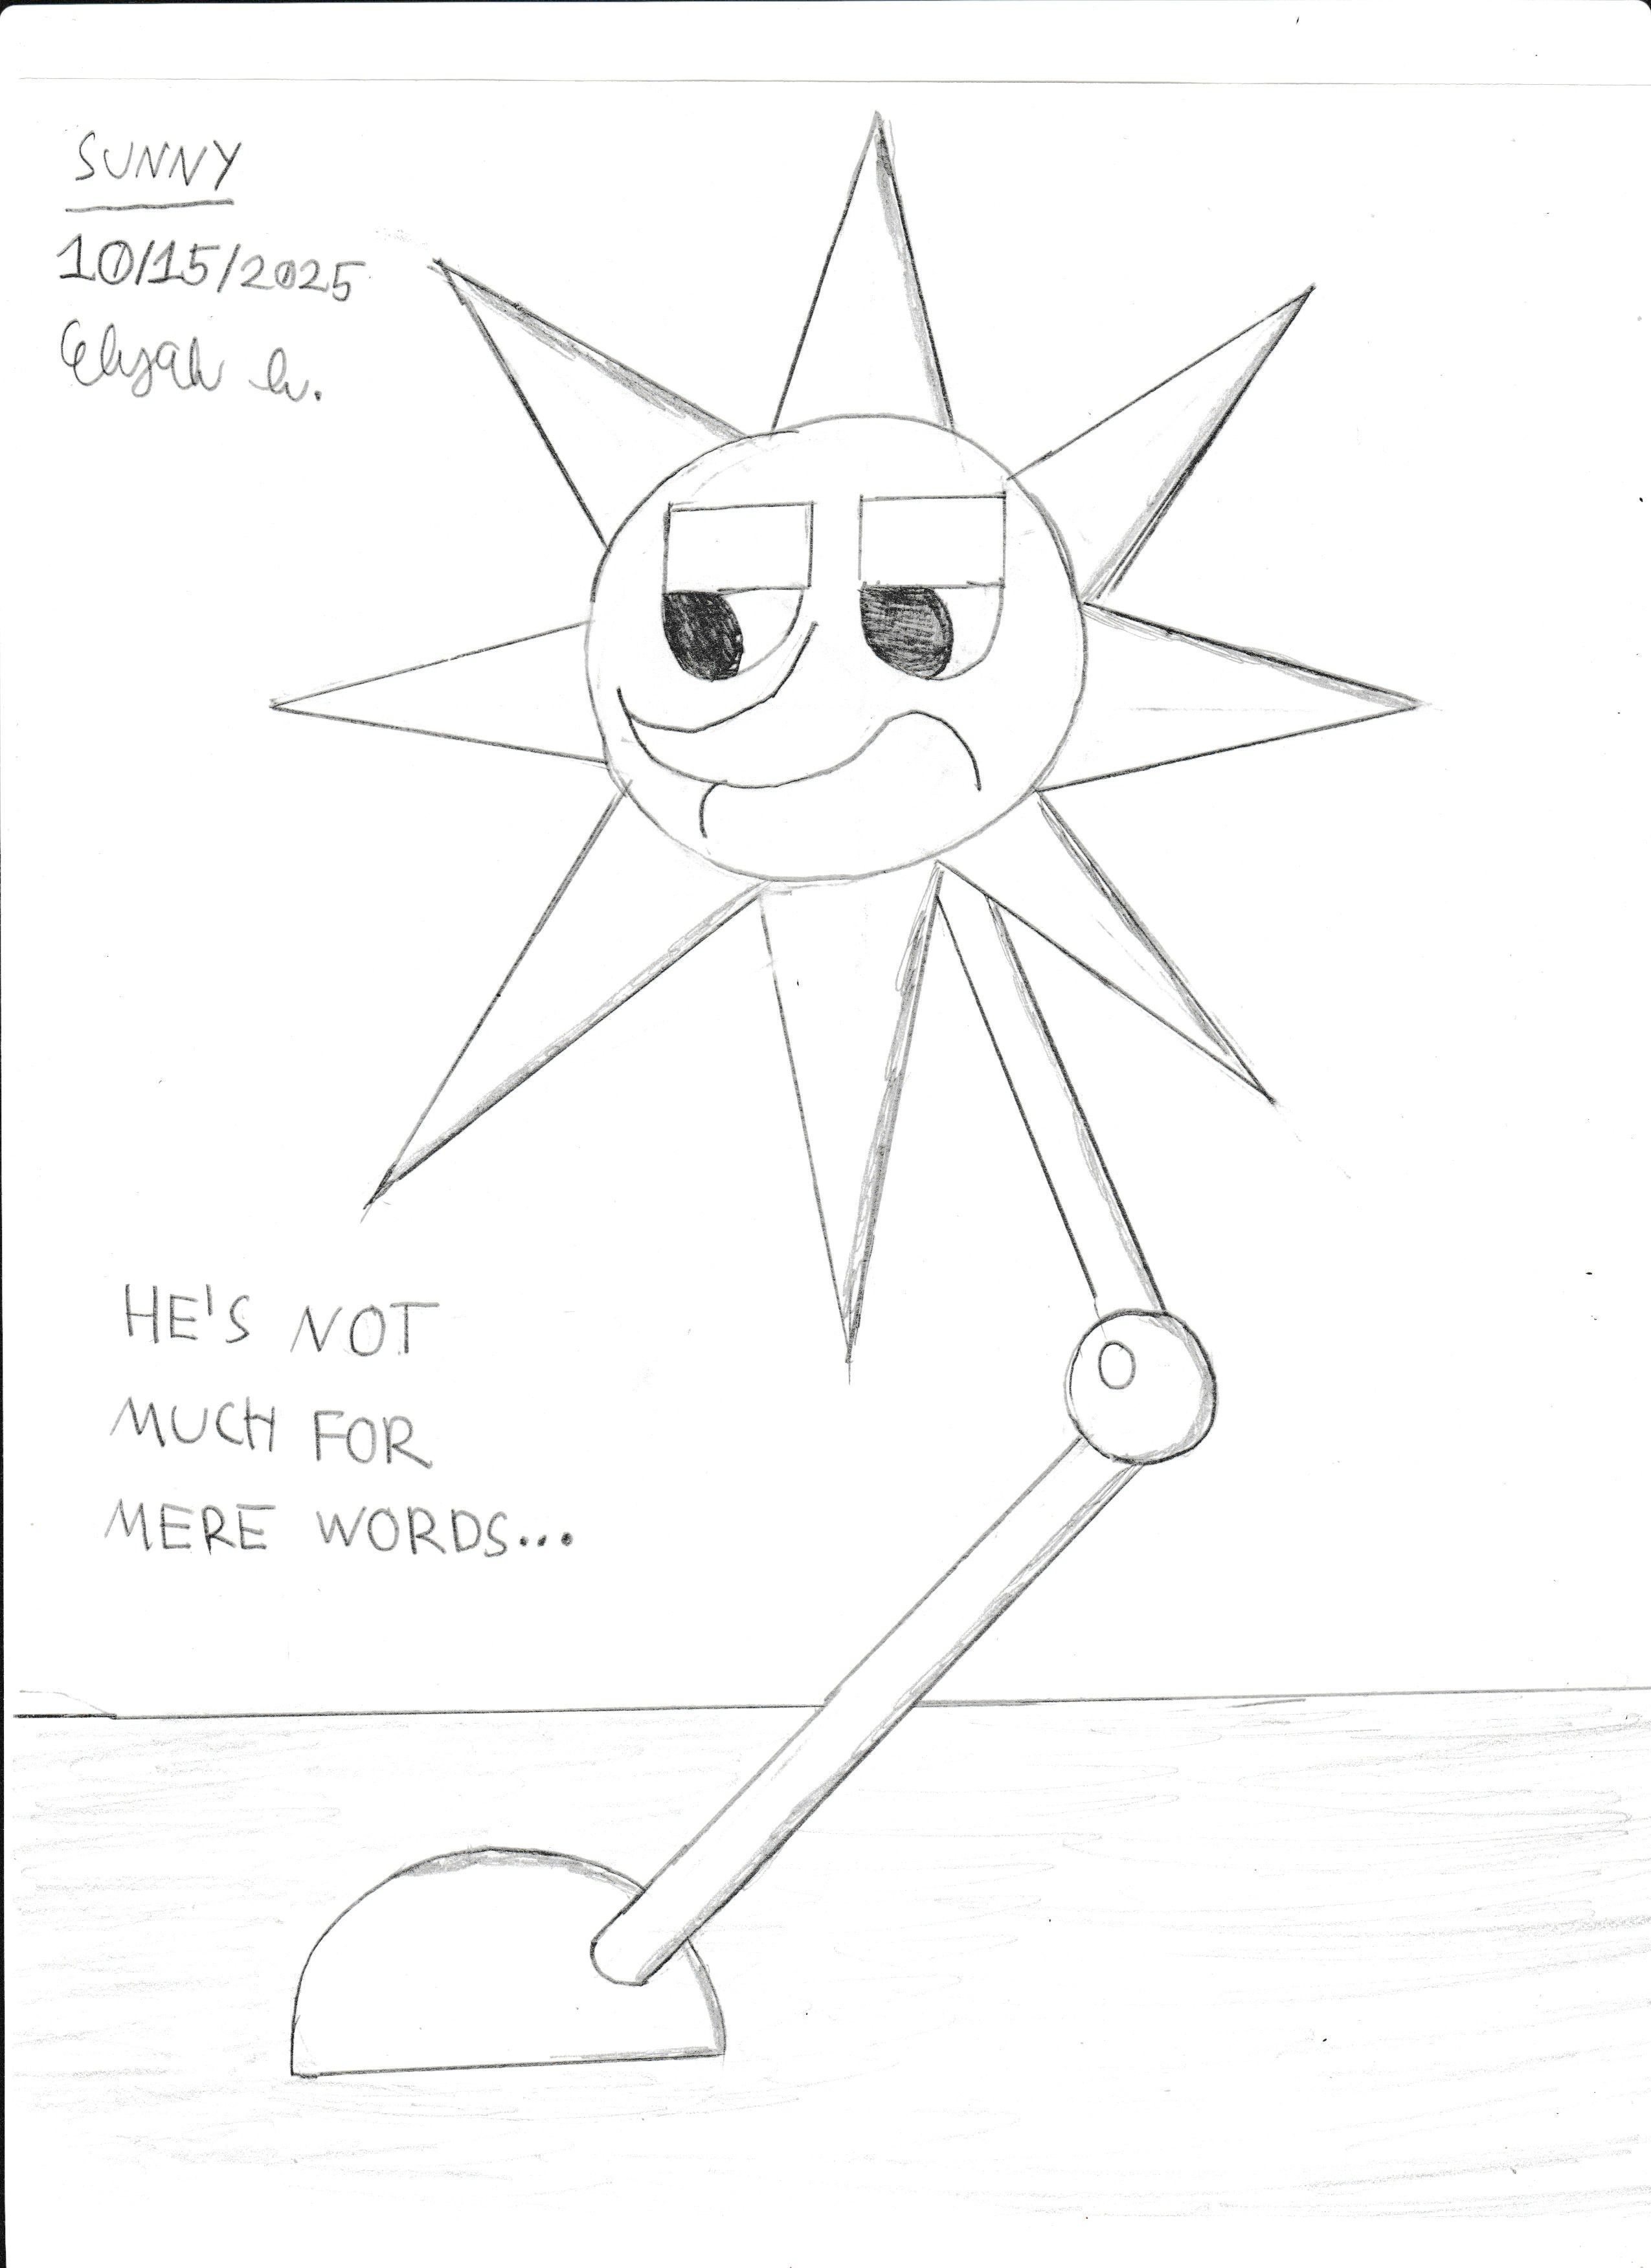 SUNNY
10/15/2025
Elijah
HE'S NOT
MUCH FOR
MERE WORDS...